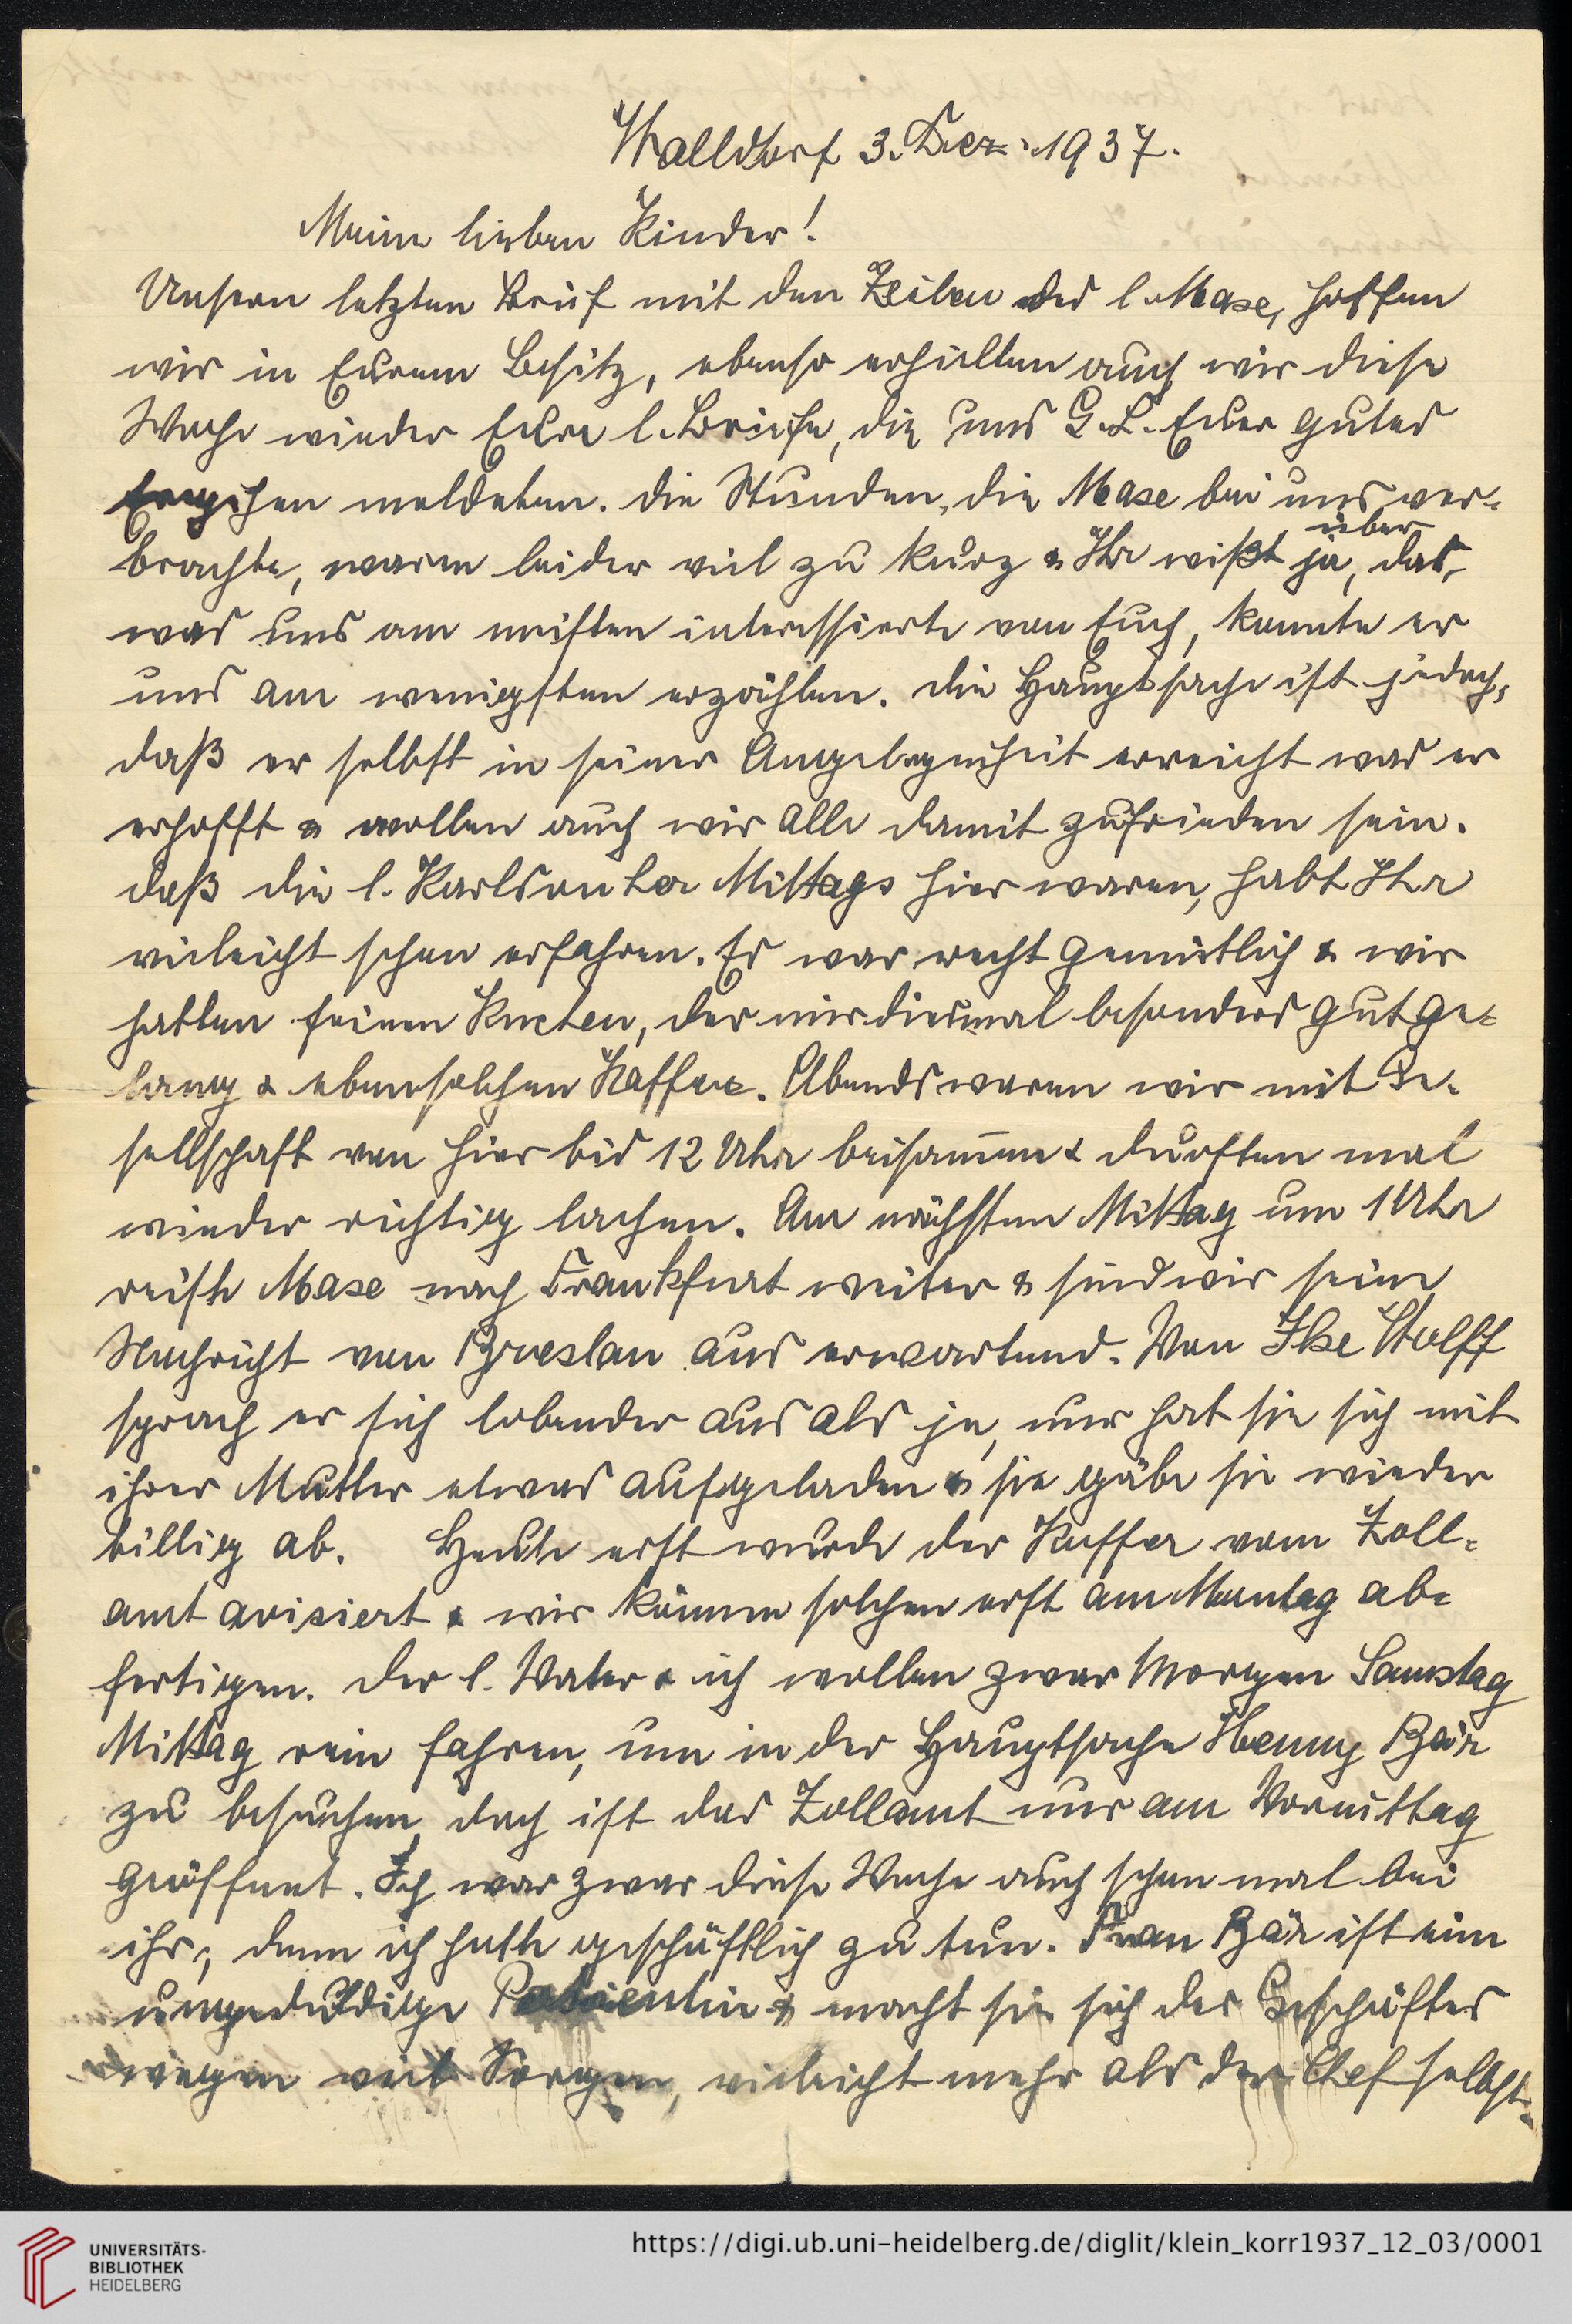 Walldorf 3. Dez. 1937.
Meine lieben Kinder!
Unsern letzten Brief mit den Zeilen des l. Mase, hoffen
wir in Eurem Besitz, ebenso erhielten auch wir diese
Woche wieder Eure l. Briefe, die uns G. L. Euer gutes
Ergehen meldeten. Die Stunden, die Mase bei uns ver-
brachte, waren leider viel zu kurz & Ihr wißt ja, über das,
was uns am meisten interessierte von Euch, konnte er
uns am wenigsten erzählen. Die Hauptsache ist jedoch,
daß er selbst in seiner Angelegenheit erreicht was er
erhofft & wollen auch wir alle damit zufrieden sein.
Daß die l. Karlsruher Mittags hier waren, habt Ihr
vieleicht schon erfahren. Es war recht gemütlich & wir
hatten feinen Kuchen, der mir diesmal besonders gut ge-
lang & ebensolchen Kaffee. Abends waren wir mit Ge-
sellschaft von hier bis 12 Uhr beisammen & durften mal
wieder richtig lachen. Am nächsten Mittag um 1 Uhr
reiste Mase nach Frankfurt weiter & sind wir seine
Nachricht von Breslau aus erwartend. Von Ilse Wolff
sprach er sich lobender aus als je, nur hat sie sich mit
ihrer Mutter etwas aufgeladen & sie gäbe sie wieder
billig ab. Heute erst wurde der Koffer vom Zoll-
amt avisiert & wir können solchen erst am Montag ab-
fertigen. Der l. Vater & ich wollen zwar Morgen Samstag
Mittag rein fahren, um in der Hauptsache Henny Bär
zu besuchen, doch ist das Zollamt nur am Vormittag
geöffnet. Ich war zwar diese Woche auch schon mal bei
ihr, denn ich hatte geschäftlich zu tun. Frau Bär ist eine
ungeduldige Patientin & macht sie sich des Geschäftes
wegen viel Sorgen, vieleicht mehr als der Chef selbst.
UNIVERSITÄTS-
BIBLIOTHEK
HEIDELBERG
https://digi.ub.uni-heidelberg.de/diglit/klein_korr1937_12_03/0001